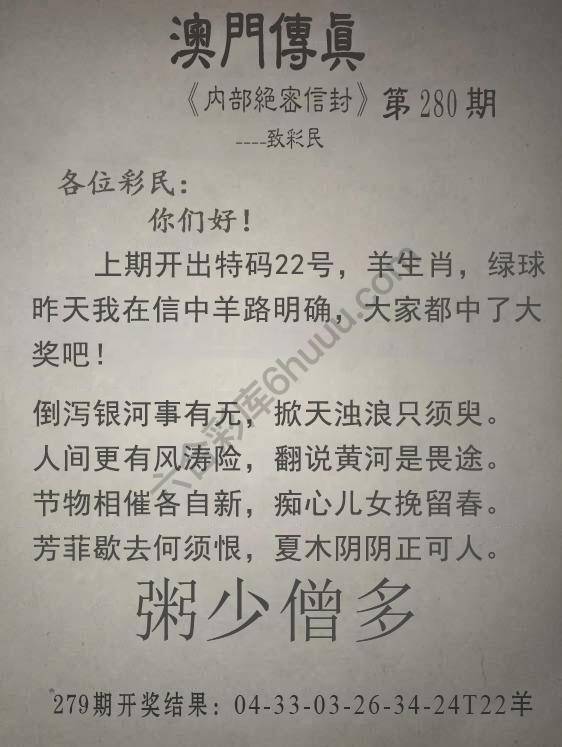 澳門傳眞
《内部絕密信封》第280期
----致彩民
各位彩民：
你们好！
上期开出特码22号，羊生肖，绿球
昨天我在信中羊路明确，大家都中了大
奖吧！
倒泻银河事有无，掀天浊浪只须臾。
人间更有风涛险，翻说黄河是畏途。
节物相催各自新，痴心儿女挽留春。
芳菲歇去何须恨，夏木阴阴正可人。
粥少僧多
279期开奖结果：04-33-03-26-34-24T22羊
六合彩库6huuu.com